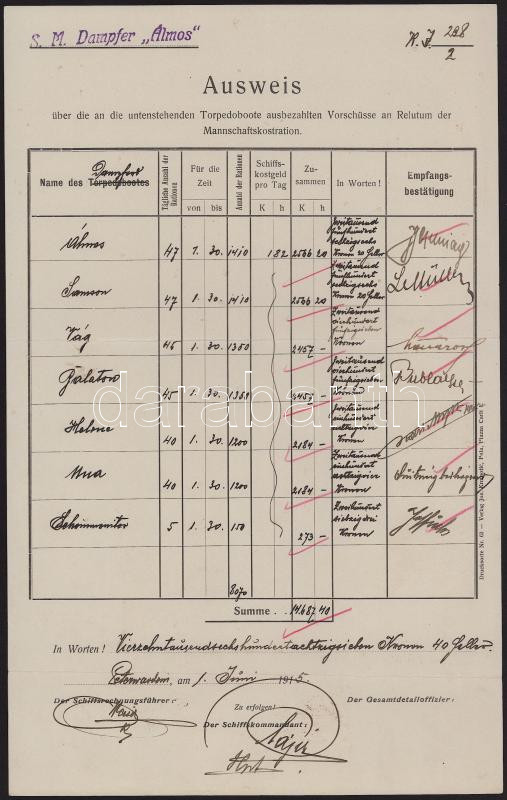 S. M. Dampfer „Álmos"
R. J. 298/2
Ausweis
über die an die untenstehenden Torpedoboote ausbezahlten Vorschüsse an Relutum der
Mannschaftskostration.
Dampfers
Name des Torpedobootes
Tägliche Anzahl der Rationen
Für die Zeit
von bis
Anzahl der Rationen
Schiffskostgeld pro Tag
K h
Zusammen
K h
In Worten!
Empfangsbestätigung
Álmos 47 1. 30. 1410 1 82 2566 20 Zweitausend fünfhundert sechzigsechs Kronen 20 Heller
Samson 47 1. 30. 1410 2566 20 Zweitausend fünfhundert sechzigsechs Kronen 20 Heller
Vág 45 1. 30. 1350 2457 – Zweitausend vierhundert fünfzigsieben Kronen
Balaton 45 1. 30. 1350 2457 – Zweitausend vierhundert fünfzigsieben Kronen
Helene 40 1. 30. 1200 2184 – Zweitausend einhundert achtzigvier Kronen
Una 40 1. 30. 1200 2184 – Zweitausend einhundert achtzigvier Kronen
5 1. 30. 150 273 – Zweihundert siebzigdrei Kronen
8070
Summe . . 14.687 40
In Worten! Vierzehntausendsechshundertachtzigsieben Kronen 40 Heller.
Peterwardein, am 1. Juni 1915.
Der Schiffsrechnungsführer:
Zu erfolgen!
Der Schiffskommandant:
Der Gesamtdetailoffizier:
darabanth